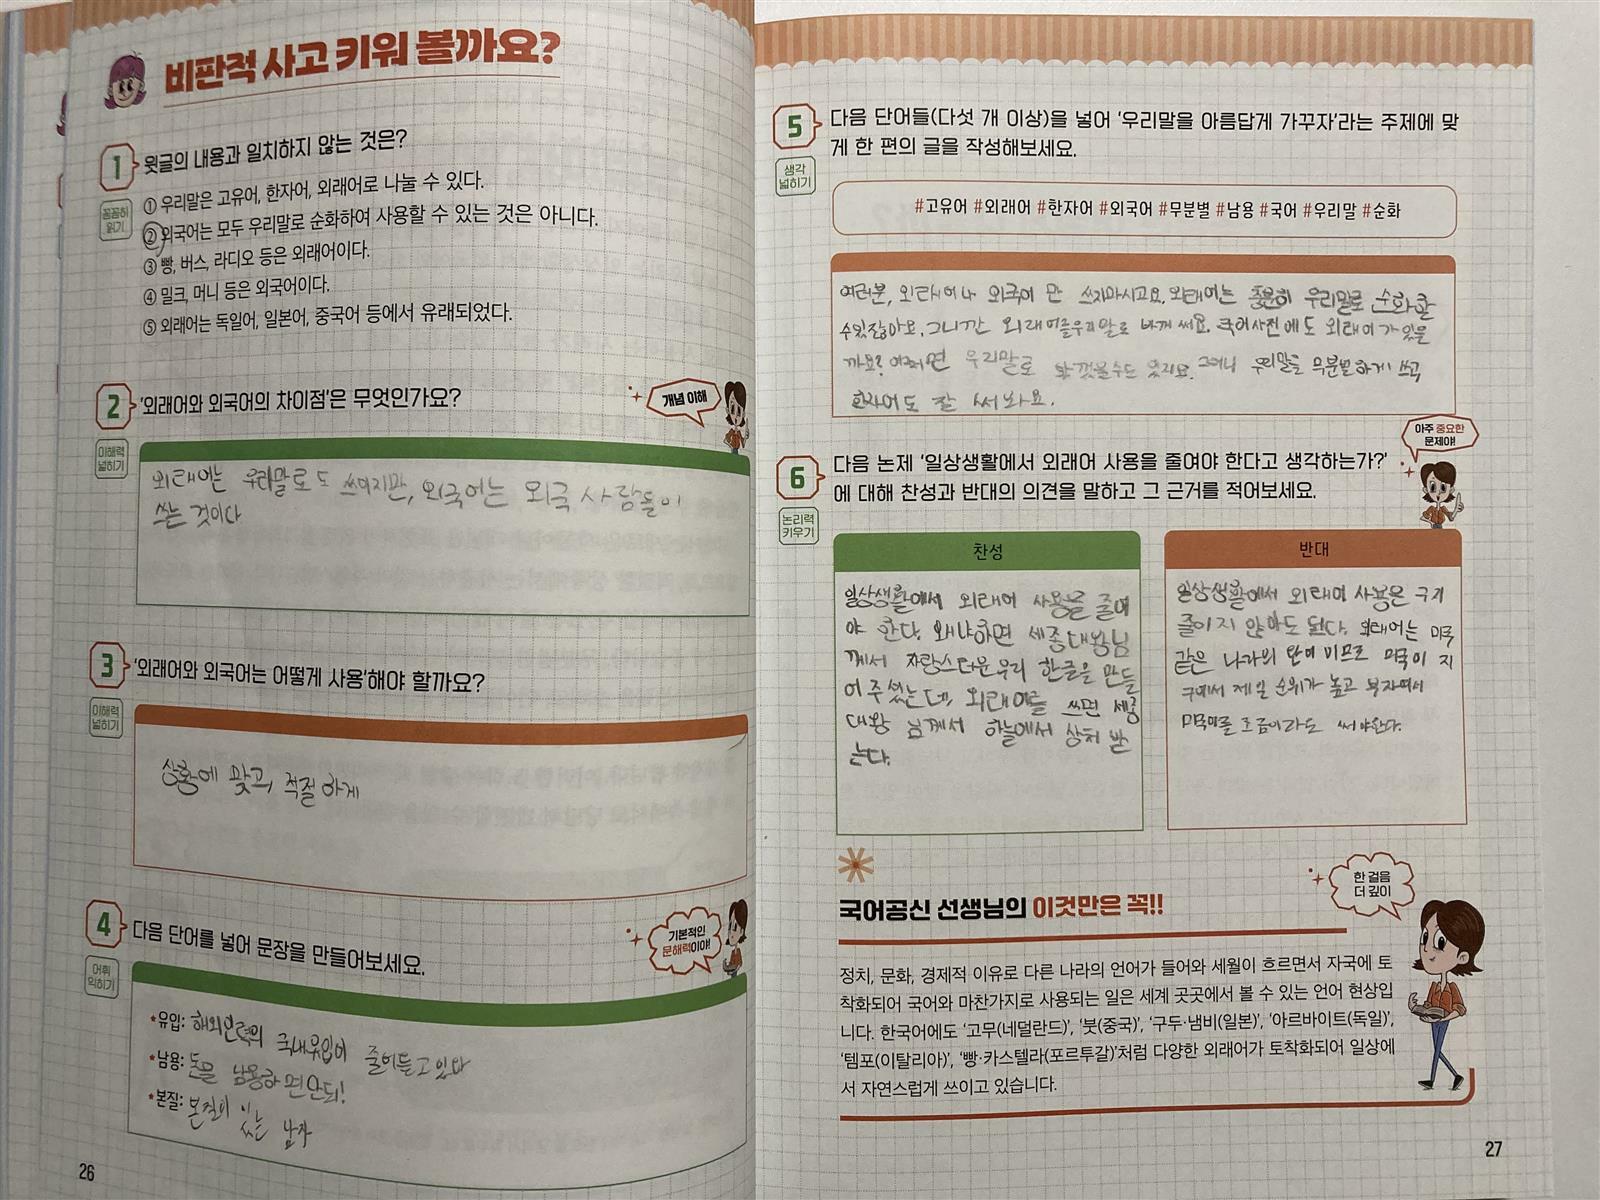 비판적 사고 키워 볼까요?
1 윗글의 내용과 일치하지 않는 것은?
꼼꼼히
읽기
① 우리말은 고유어, 한자어, 외래어로 나눌 수 있다.
② 외국어는 모두 우리말로 순화하여 사용할 수 있는 것은 아니다.
③ 빵, 버스, 라디오 등은 외래어이다.
④ 밀크, 머니 등은 외국어이다.
⑤ 외래어는 독일어, 일본어, 중국어 등에서 유래되었다.
2 '외래어와 외국어의 차이점'은 무엇인가요?
개념 이해
이해력
넓히기
외래어는 우리말로도 쓰이지만, 외국어는 외국 사람들이
쓰는 것이다
3 '외래어와 외국어는 어떻게 사용'해야 할까요?
이해력
넓히기
상황에 맞고, 적절하게
4 다음 단어를 넣어 문장을 만들어보세요.
기본적인
문해력이야!
어휘
익히기
*유입: 해외인력의 국내유입이 줄어들고 있다
*남용: 돈을 남용하면 안돼!
*본질: 본질이 있는 남자
26
5 다음 단어들(다섯 개 이상)을 넣어 '우리말을 아름답게 가꾸자'라는 주제에 맞
게 한 편의 글을 작성해보세요.
생각
넓히기
#고유어 #외래어 #한자어 #외국어 #무분별 #남용 #국어 #우리말 #순화
여러분, 외래어나 외국어 만 쓰지마시고요, 외래어는 충분히 우리말로 순화할
수있잖아요. 그니깐 외래어를우리말로 바꿔 써요. 국어사전에도 외래어가 있을
까요? 어쩌면 우리말로 바꿨을수도 있지요. 그러니 우리말을 무분별하게 쓰고
한자어도 잘 써봐요.
아주 중요한
문제야!
6 다음 논제 '일상생활에서 외래어 사용을 줄여야 한다고 생각하는가?'
에 대해 찬성과 반대의 의견을 말하고 그 근거를 적어보세요.
논리력
키우기
찬성
일상생활에서 외래어 사용을 줄여
야 한다. 왜냐하면 세종대왕님
께서 자랑스러운 우리 한글을 만들
어 주셨는데, 외래어를 쓰면 세종
대왕 님께서 하늘에서 상처 받
는다.
반대
일상생활에서 외래어 사용은 굳이
줄이지 않아도 된다. 외래어는 미국
같은 나라의 단어 이므로 미국이 지
구에서 제일 순위가 높고 부자여서
미국어를 조금이라도 써야한다.
한 걸음
더 깊이
국어공신 선생님의 이것만은 꼭!!
정치, 문화, 경제적 이유로 다른 나라의 언어가 들어와 세월이 흐르면서 자국에 토
착화되어 국어와 마찬가지로 사용되는 일은 세계 곳곳에서 볼 수 있는 언어 현상입
니다. 한국어에도 '고무(네덜란드)', '붓(중국)', '구두·냄비(일본)', '아르바이트(독일)',
'템포(이탈리아)', '빵·카스텔라(포르투갈)'처럼 다양한 외래어가 토착화되어 일상에
서 자연스럽게 쓰이고 있습니다.
27